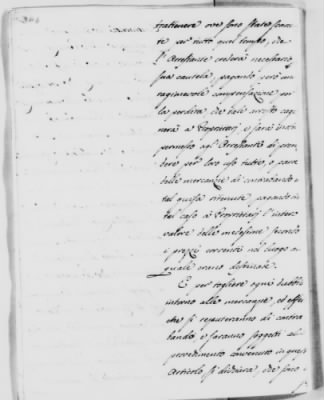 trattenere ove sono state fermate
te per tutto quel tempo, che
l'Arrestante crederà necessario
sua cautela, pagando però un
ragionevole compensazione
la perdita che tale arresto cag
nerà a' Proprietarj, e sarà
permesso agl'Arrestanti di pren
dere per loro uso tutte, o parte
delle mercanzie di contrabando
tal guisa ritenute, pagando in
tal caso a' Proprietarj l'intero
valore delle medesime secondo
i prezzi correnti nel luogo a
quale erano destinate.
E per togliere ogni dubbio
intorno alle mercanzie, ed effetti
che si reputeranno di contra
bando, e saranno soggetti al
provedimento convenuto in quest
Articolo si dichiara, che sono